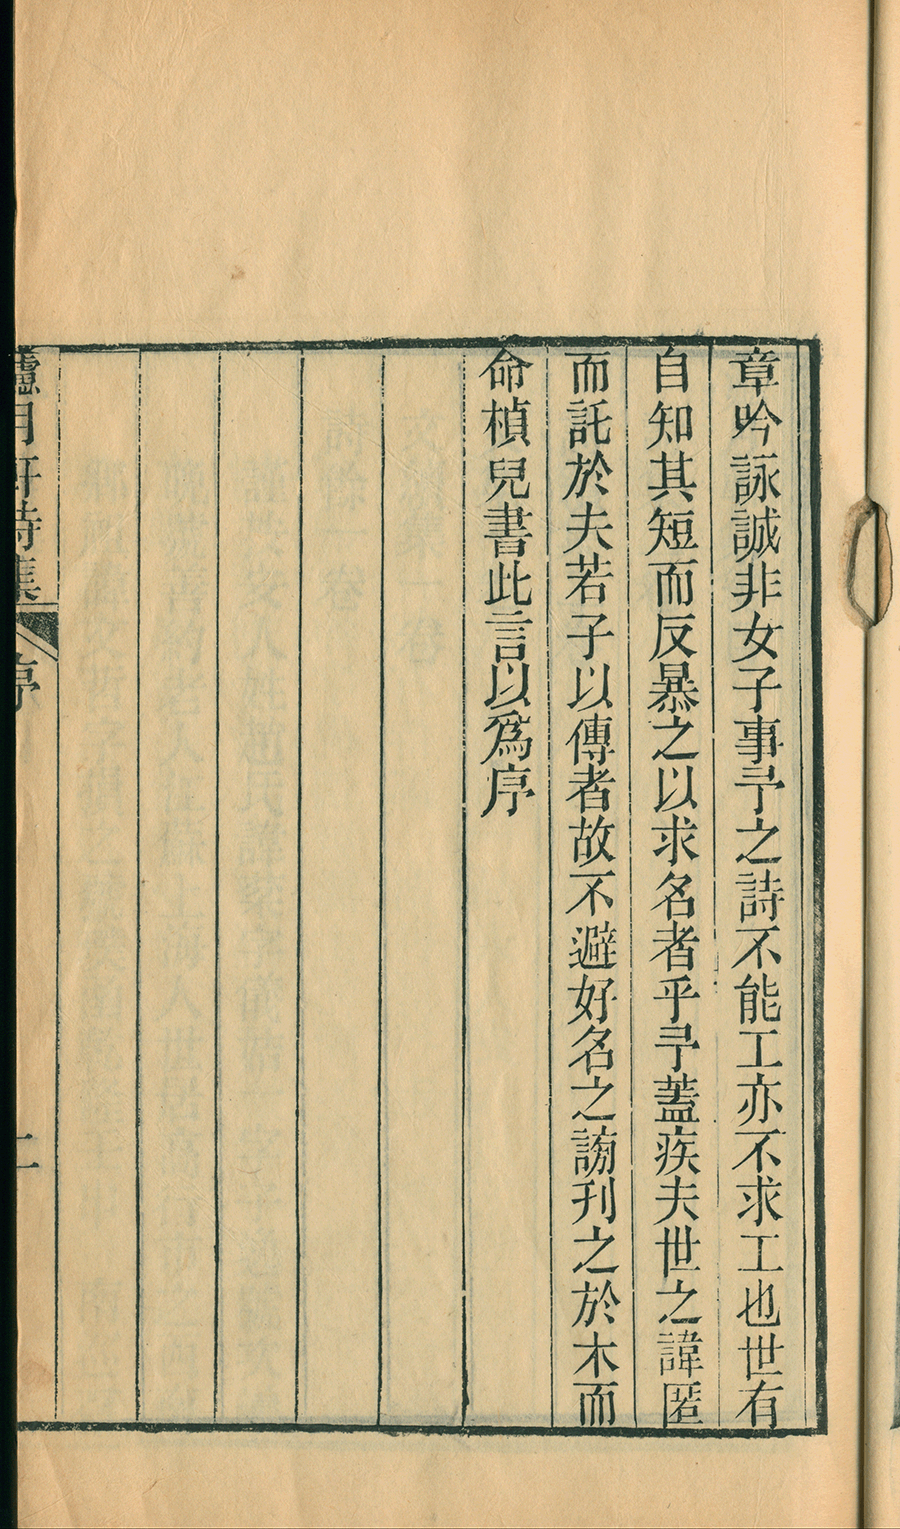 章吟詠誠非女子事予之詩不能工亦不求工也世有
自知其短而反暴之以求名者乎予蓋疾夫世之諱匿
而託於夫若子以傳者故不避好名之謗刊之於木而
命楨兒書此言以爲序
月軒詩集
序
二